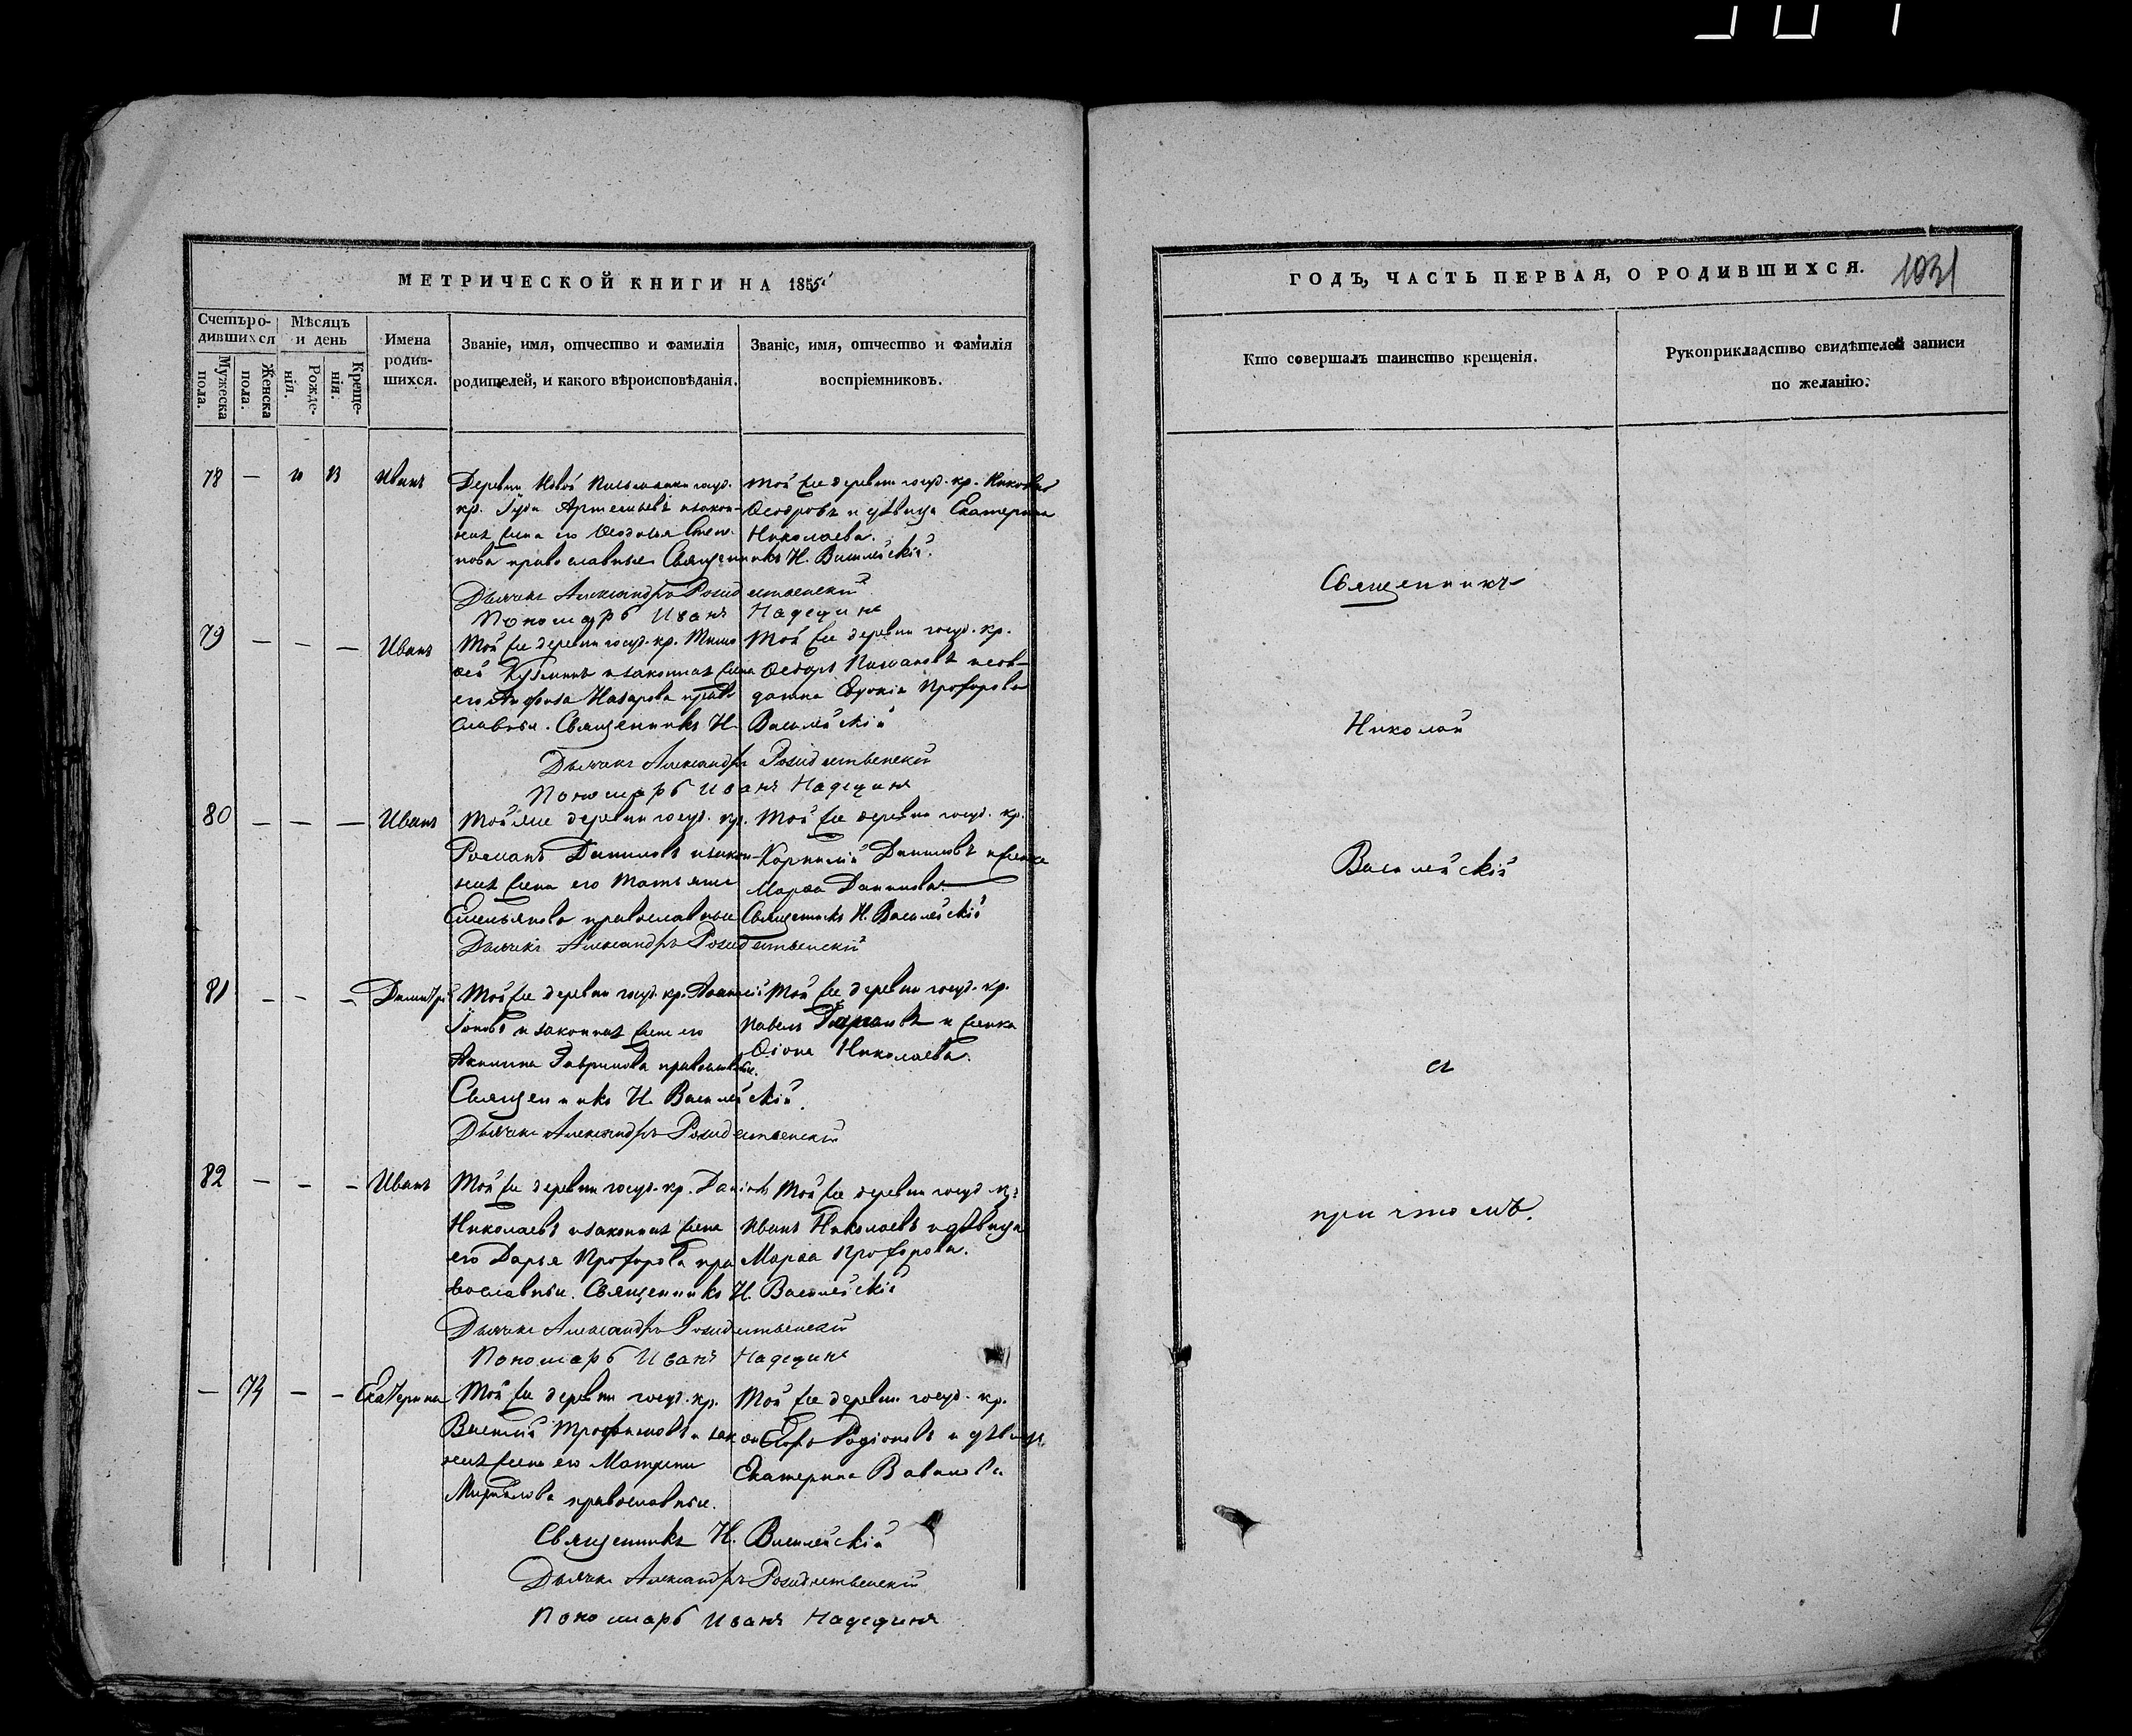 МЕТРИЧЕСКОЙ КНИГИ НА 1855
ГОДЪ, ЧАСТЬ ПЕРВАЯ, О РОДИВШИХСЯ.
1031
Счетъ родившихся
Мужеска пола.
Женска пола.
Мѣсяцъ и день
Рожденія.
Крещенія.
Имена родившихся.
Званіе, имя, отчество и фамилія
родителей, и какого вѣроисповѣданія.
Званіе, имя, отчество и фамилія
воспріемниковъ.
Кто совершалъ таинство крещенія.
Рукоприкладство свидѣтелей записи
по желанію.
78 — Иванъ
Деревни Новой госуд.
кр. Артемьевъ и закон-
ная жена его Ѳеодосья Степа-
нова православные
Той же деревни госуд. кр.
Ѳеодоровъ и дѣвица Екатерина
Николаева.
Священникъ Н. Василейскій.
Дьячекъ Александръ Рождественскій
Пономарь Иванъ Надеждинъ
79 — — — Иванъ
Той же деревни госуд. кр. Тимо
ѳей Кузминъ и законная жена
его Назарова право
славные.
Той же деревни госуд. кр.
Ѳедоръ и солдатка
Евдокія Прохорова
Священникъ Н. Василейскій
Дьячекъ Александръ Рождественскій
Пономарь Иванъ Надеждинъ
80 — — — Иванъ
Той же деревни госуд. кр.
Романъ Даниловъ и закон
ная жена его Татьяна
Емельянова православные
Той же деревни госуд. кр.
Корнилій Даниловъ и женка
Марѳа Данилова.
Священникъ Н. Василейскій
Дьячекъ Александръ Рождественскій
81 — — — Димитрій
Той же деревни госуд. кр.
Іоновъ и законная жена его
Акилина Гаврилова православные.
Той же деревни госуд. кр.
Павелъ и женка
Николаева.
Священникъ Н. Василейскій.
Дьячекъ Александръ Рождественскій
82 — — — Иванъ
Той же деревни госуд. кр.
Николаевъ и законная жена
его Дарья Прохорова пра
вославные.
Той же деревни госуд. кр.
Иванъ Николаевъ и дѣвица
Марѳа Прохорова.
Священникъ Н. Василейскій
Дьячекъ Александръ Рождественскій
Пономарь Иванъ Надеждинъ
— 74 — — Екатерина
Той же деревни госуд. кр.
Василій Трофимовъ и закон
ная жена его Матрена
православные.
Той же деревни госуд. кр.
Родіоновъ и дѣвица
Екатерина
Священникъ Н. Василейскій
Дьячекъ Александръ Рождественскій
Пономарь Иванъ Надеждинъ
Священникъ
Николай
Василейскій
съ
причтомъ.